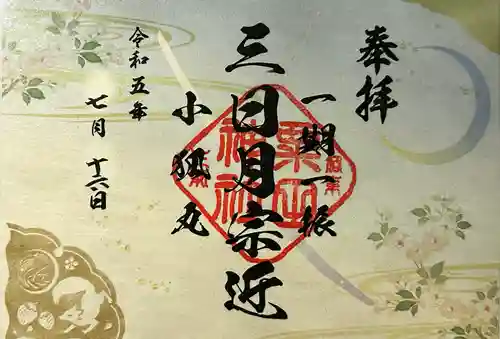 奉拝
一期一振
三日月宗近
小狐丸
令和五年
七月十六日
粟田神社